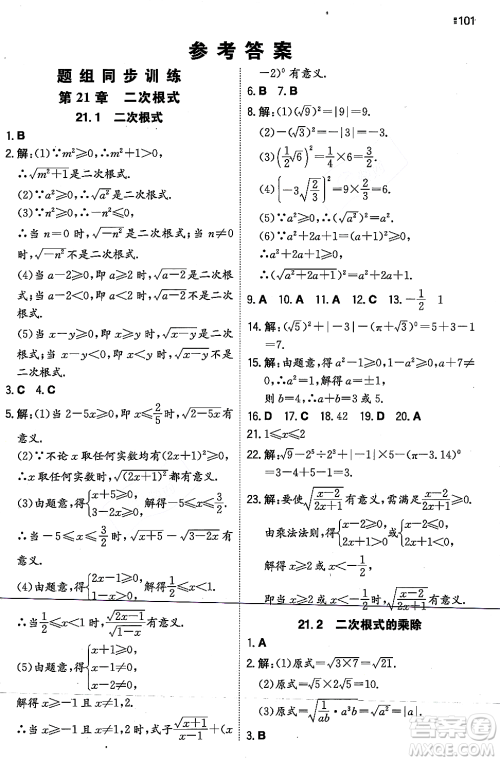 101
参考答案
题组同步训练
第21章 二次根式
21.1 二次根式
1. B
2. 解:(1)∵m²≥0,∴m²+1>0,
∴√(m²+1)是二次根式.
(2)∵a²≥0,∴√(a²)是二次根式.
(3)∵n²≥0,∴-n²≤0,
∴当n=0时,√(-n²)是二次根式;当n≠0时,
√(-n²)不是二次根式.
(4)当a-2≥0,即a≥2时,√(a-2)是二次根
式;当a-2<0,即a<2时,√(a-2)不是二次
根式.
(5)当x-y≥0,即x≥y时,√(x-y)是二次根
式;当x-y<0,即x<y时,√(x-y)不是二次
根式.
3. C 4. C
5. 解:(1)当2-5x≥0,即x≤2/5时,√(2-5x)有
意义.
(2)∵不论x取任何实数时都有(2x+1)²≥
0,∴x取任何实数时,√((2x+1)²)都有意义.
(3)由题意,得{x+5≥0, 3-2x≥0,解得-5≤x≤3/2.
∴当-5≤x≤3/2时,√(x+5)-√(3-2x)有
意义.
(4)由题意,得{2x-1≥0, 1-x>0,解得1/2≤x<1.
∴当1/2≤x<1时,√(2x-1)/√(1-x)有意义.
(5)由题意,得{x+1≥0, x-1≠0, x-2≠0,
解得x≥-1且x≠1且x≠2.
∴当x≥-1且x≠1且x≠2时,√(x+1)/(x-1)+(x
-2)⁰有意义.
6. B 7. B
8. 解:(1)(√9)²=|9|=9.
(2)-(√3)²=-|3|=-3.
(3)(1/2√6)²=1/4×6=3/2.
(4)(-3√(2/3))²=9×2/3=6.
(5)∵2a²≥0,∴(√(2a²))²=2a².
(6)∵a²+2a+1=(a+1)²≥0,
∴(√(a²+2a+1))²=a²+2a+1.
9. A 10. A 11. A 12. C 13. -1/2 1
14. 解:(√5)²+|-3|-(π+√3)⁰=5+3-1
=7.
15. 解:由题意,得a²-1≥0,1-a²≥0,a+7≠
0,∴a²=1,解得a=±1.
所以b=4,所以a-b=-3或-5.
16. D 17. C 18. 42 19. D 20. A
21. 1≤x≤2
22. 解:√9-2⁵÷2³+|-1|×5-(π-3.14)⁰
=3-4+5-1=3.
23. 解:要使√((x-2)/(2x+1))有意义,需满足(x-2)/(2x+1)≥0,
由乘法法则,得{x-2≥0, 2x+1>0或{x-2≤0, 2x+1<0,
解得x≥2或x<-1/2.
即当x≥2或x<-1/2时,√((x-2)/(2x+1))有意义.
21.2 二次根式的乘除
1. A
2. 解:(1)原式=√(3×7)=√21.
(2)原式=√(1/2×64)=√32=4√2.
(3)原式=√(1/(ab)·a³b)=√(a²)=|a|.
3. B